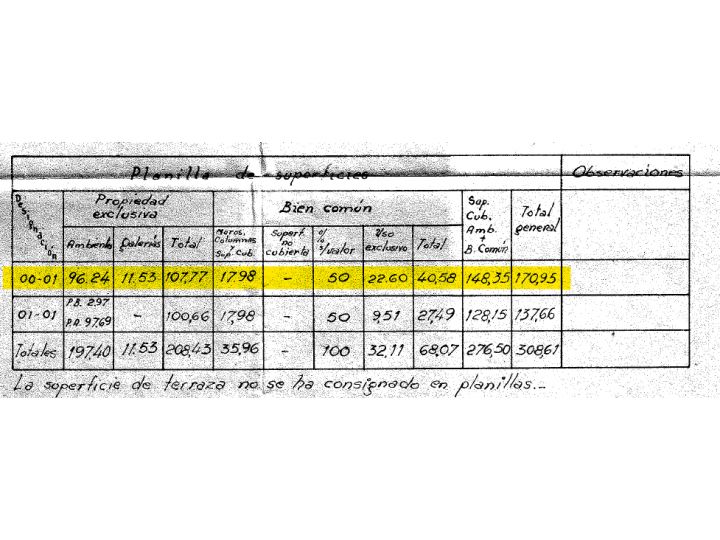 Planilla de superficies Observaciones
Designación Propiedad exclusiva Bien común Sup. Cub. Amb. + B. Común Total general
Ambiente Galerías Total Muros, Columnas y Sup. Cub. Superf. no cubierta % s/valor Uso exclusivo Total
00-01 96.24 11.53 107,77 17.98 - 50 22.60 40,58 148,35 170,95
01-01 P.B. 2.97 P.A. 97.69 - 100,66 17,98 - 50 9,51 27,49 128,15 137,66
Totales 197.40 11.53 208,43 35,96 - 100 32,11 68,07 276,50 308,61
La superficie de terraza no se ha consignado en planillas._